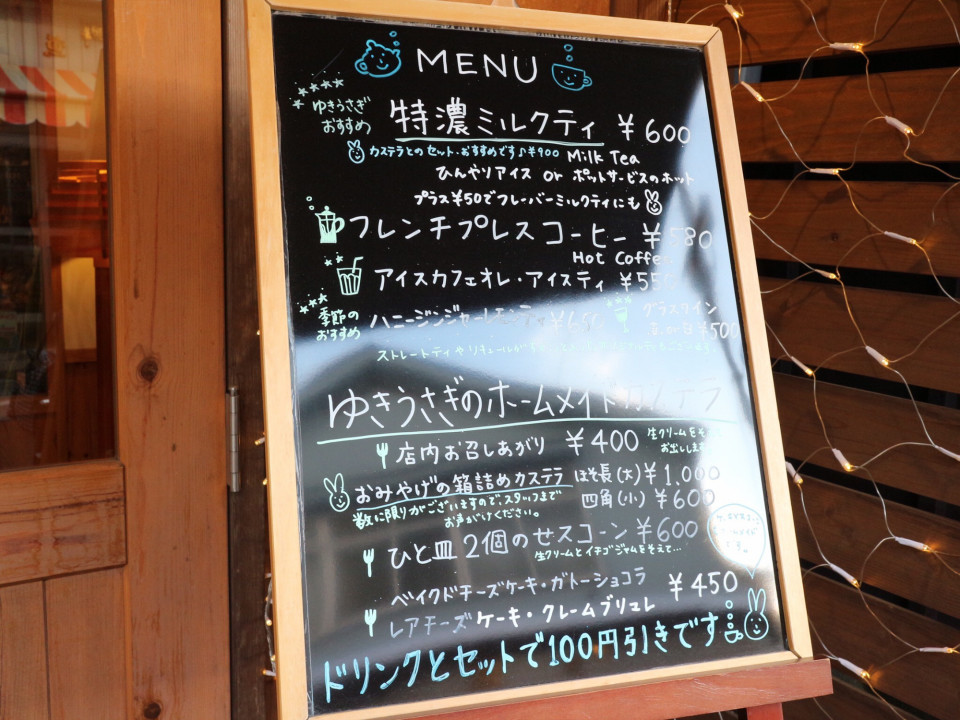 MENU
ゆきうさぎ
おすすめ
特濃ミルクティ ¥600
カステラとのセット、おすすめです♪¥900 Milk Tea
ひんやりアイス or ポットサービスのホット
プラス¥50でフレーバーミルクティにも
フレンチプレスコーヒー ¥580
Hot Coffee
アイスカフェオレ・アイスティ ¥550
季節の
おすすめ
ハニージンジャーレモンティ
グラスワイン
¥500
ストレートティやリキュールが
ゆきうさぎのホームメイドカステラ
店内お召しあがり ¥400
生クリームをそえて
お出しします
おみやげの箱詰めカステラ ほそ長(大)¥1,000
四角(小)¥600
数に限りがございますので、スタッフまで
お声がけください。
ひと皿2個のせスコーン ¥600
生クリームとイチゴジャムをそえて…
ベイクドチーズケーキ・ガトーショコラ
レアチーズケーキ・クレームブリュレ ¥450
ドリンクとセットで100円引きです